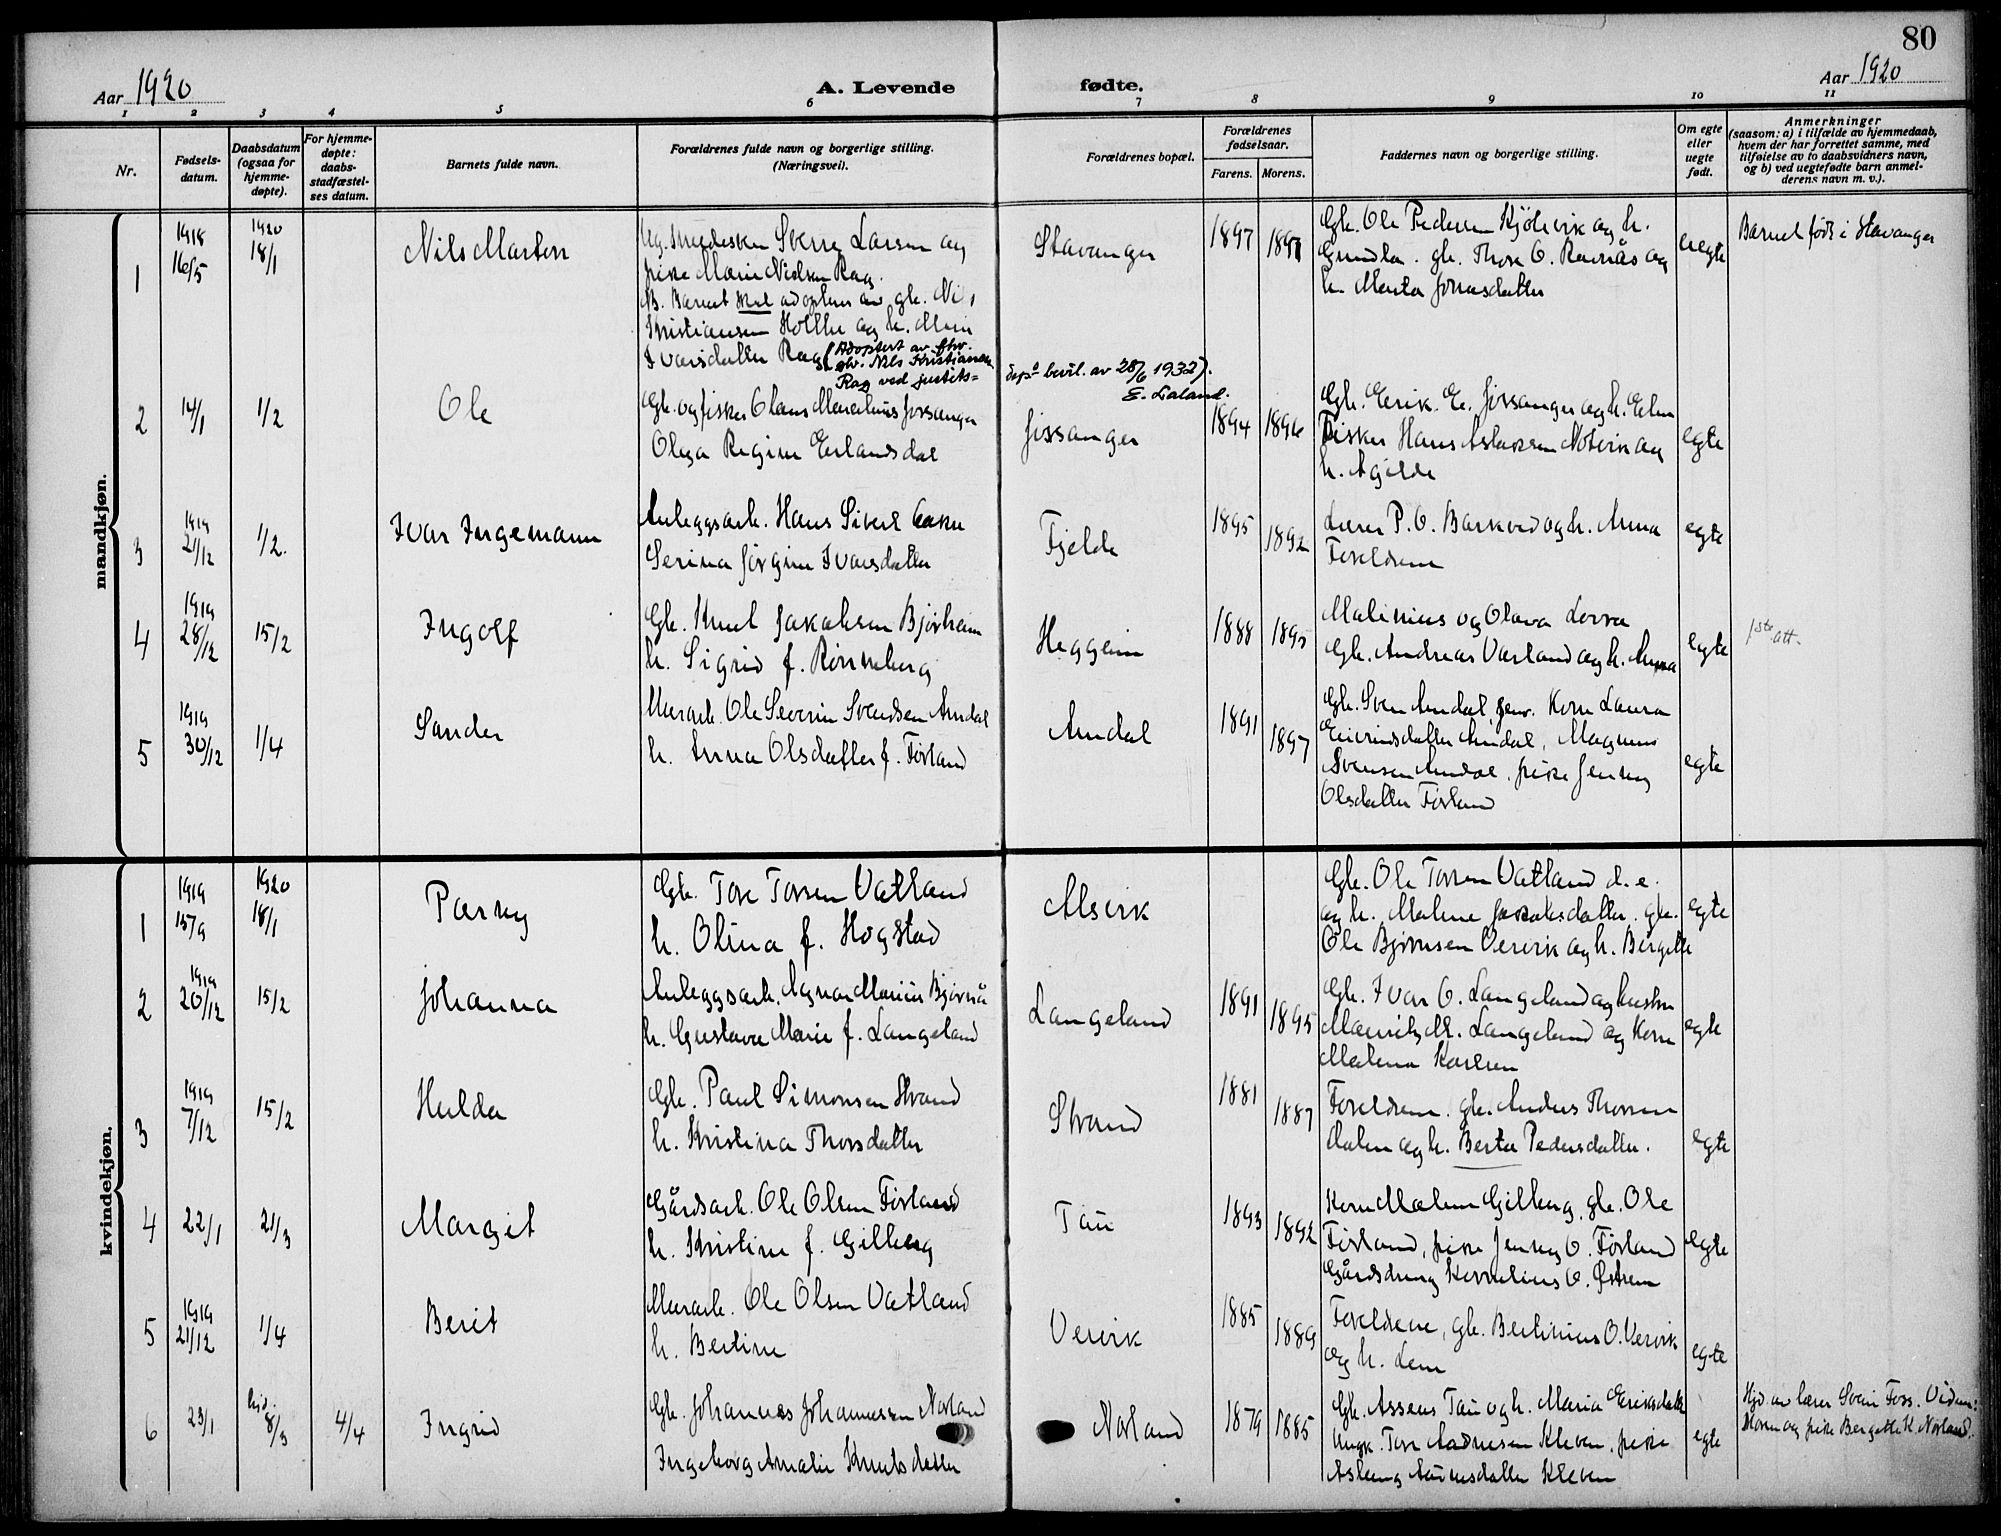 80
Aar 1920
A. Levende fødte.
Aar 1920
1 2 3 4 5 6 7 8 9 10 11
Nr.
Fødsels-
datum.
Daabsdatum
(ogsaa for
hjemme-
døpte).
For hjemme-
døpte:
daabs-
stadfæstel-
ses datum.
Barnets fulde navn.
Forældrenes fulde navn og borgerlige stilling.
(Næringsvei).
Forældrenes bopæl.
Forældrenes
fødselsaar.
Farens. Morens.
Faddernes navn og borgerlige stilling.
Om egte
eller
uegte
født.
Anmerkninger
(saasom: a) i tilfælde av hjemmedaab,
hvem der har forrettet samme, med
tilføielse av to daabsvidners navn,
og b) ved uegtefødte barn anmel-
derens navn m. v.).
mandkjøn.
1
1918
16/5
1920
18/1
Nils Marton
Ug. Sverre Larsen og
pike Marie Nielsen Rag.
NB. Barnet skal adopteres av gbr. Nils
Kristiansen Holtke og h. Marie
Ivarsdatter Rag (Adoptert av fhv.
gbr. Nils Kristiansen
Rag ved justits=
depts bevil. av 28/6 1932).
E. Laland.
Stavanger
1897
1898
Gbr. Ole Pedersen Kjølevik og h.
Gunda. gbr. Thore O. Ravnås og
h. Marta Jonasdatter
uegte
Barnet født i Stavanger
2
14/1
1/2
Ole
Gbr. og fisker Olaus Marselius Jøssanger
Olga Regine Erlandsdal
Jøssanger
1894
1896
Gbr. Erik. E. Jøssanger og h. Elen
Fisker Hans Aslaksen Notvik og
h. Agilde
egte
3
1919
21/12
1/2.
Ivar Ingemann
Anleggsarb. Hans Sivert
Serina Jørgine Ivarsdatter
Fjelde
1895
1892
Lærer P. O. Barkved og h. Anna
Foreldrene
egte
4
1919
28/12
15/2
Ingolf
Gbr. Knut Jakobsen Bjørheim
h. Sigrid f. Rønneberg
Heggeim
1888
1895
Malinius og Olava Lovra
Gbr. Andreas Varland og h. Anna
egte
1ste att.
5
1919
30/12
1/4
Sander
Murarb. Ole Severin Svendsen Amdal
h. Anna Olsdatter f. Førland
Amdal
1891
1897
Gbr. Sven Amdal, Kone Laura
Eivindsdatter Amdal, Magnus
Svensen Amdal, pike Jenny
Olsdatter Førland
egte
kvindekjøn.
1
1919
15/9
1920
18/1
Parny
Gbr. Tore Torsen Vatland
h. Olina f. Hogstad
Alsvik
Gbr. Ole Torsen Vatland d. e.
og h. Malene Jakobsdatter. gbr.
Ole Bjørnsen Vervik og h. Bergitte
egte
2
1919
20/12
15/2
Johanna
Anleggsarb. Agnar Marius Bjørnå
h. Gustava Marie f. Langeland
Langeland
1891
1895
Gbr. Ivar O. Langeland og hustru
Langeland og Kone
Malena Karlsen
egte
3
1919
7/12
15/2
Hulda
Gbr. Paul Simonsen Strand
h. Kristina Thorsdatter
Strand
1881
1887
Foreldrene. gbr. Anders Thorsen
Dalen og h. Berta Pedersdatter.
egte
4
22/1
21/3
Margit
Gårdsarb. Ole Olsen Førland
h. Kristine f. Gilberg
Tau
1893
1892
Kone Malene Gilberg, gbr. Ole
Førland, pike Jenny O. Førland
Gårdsdreng Kornelius O. Østrem
egte
5
1919
21/12
1/4
Berit
Murarb. Ole Olsen Vatland
h. Bertine
Vervik
1885
1889
Foreldrene, gbr. Bertinius O. Vervik
og h. Lene
egte
6
23/1
hjd.
8/3
4/4
Ingrid
Gbr. Johannes Johannessen Norland
Ingeborg Amalie Knutsdatter
Norland
1879
1885
Gbr. Assens Tau og h. Maria Eriksdatter
Ungk. Tore Aadnesen Kleven, pike
Aslaug Aadnesdatter Kleven
egte
Hjd. av lærer Svein Foss. Vidner:
Moren og pike Bergitte K. Norland.